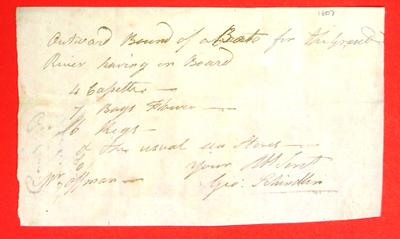 1807
Outward Bound of a Boat for the Grand
River having on Board
4 Cassettes
7 Bags Flower
16 Kegs
& the usual sea Stores
your Ob Servt
Geo: Schindler
Mr Hoffman